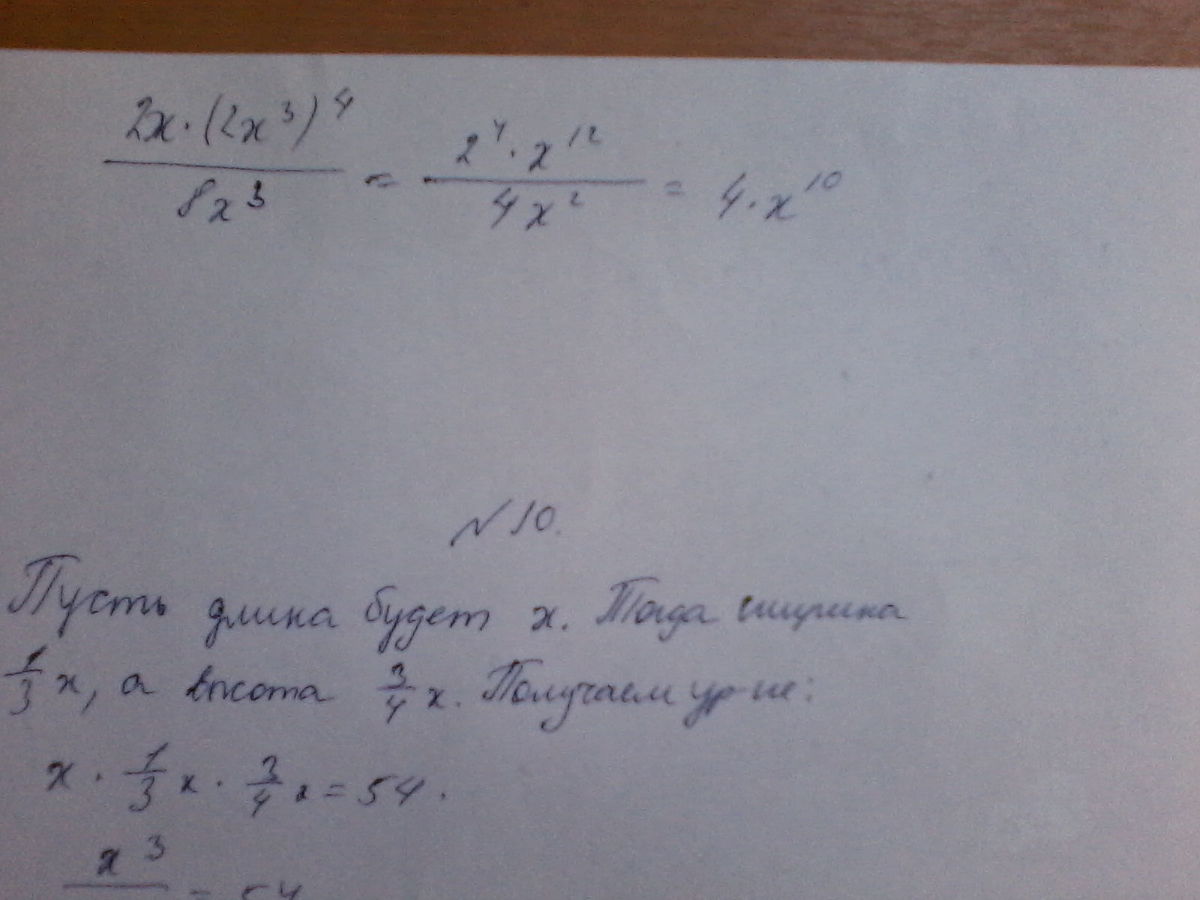 2x·(2x³)⁴ / 8x³ = 2⁴·x¹² / 4x² = 4·x¹⁰
№10.
Пусть длина будет x. Тогда ширина
1/3 x, а высота 3/4 x. Получаем ур-ие:
x · 1/3 x · 3/4 x = 54.
x³ = 54